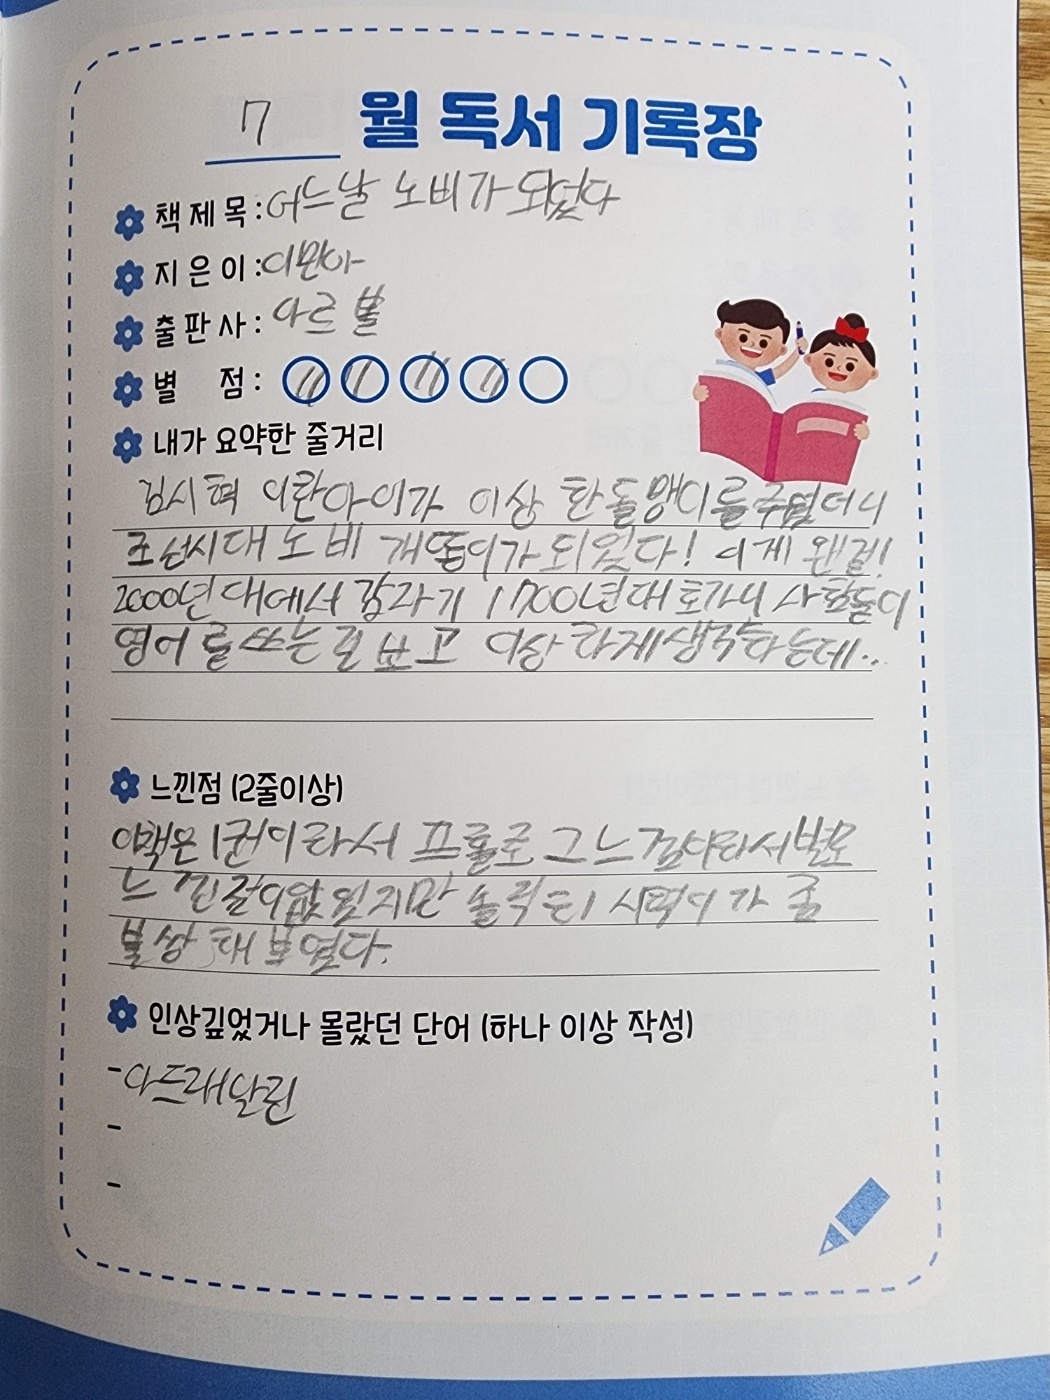 7 월 독서 기록장
책 제 목 : 어느날 노비가 되었다
지 은 이 : 이민아
출 판 사 : 아르볼
별 점 :
내가 요약한 줄거리
김시혁 이란아이가 이상 한돌맹이를주웠더니
조선시대 노비 개똥이가 되었다! 이게 왠걸!
2000년대에서 갑자기 1700년대로가니 사람들이
영어를쓰는걸 보고 이상하게생각하는데...
느낀점 (2줄이상)
이책은 1권이라서 프롤로그느낌이라서별로
느낀점이없었지만 솔직히 시혁이가 좀
불쌍해보였다.
인상깊었거나 몰랐던 단어 (하나 이상 작성)
-아드레날린
-
-